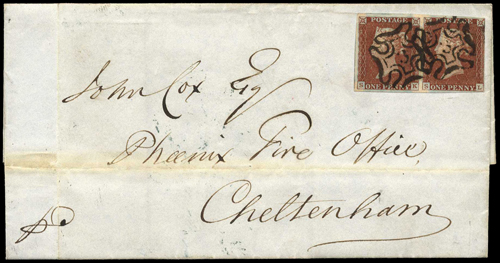 POSTAGE
ONE PENNY ONE PENNY
John Cox Esq
Phœnix Fire Office
Cheltenham